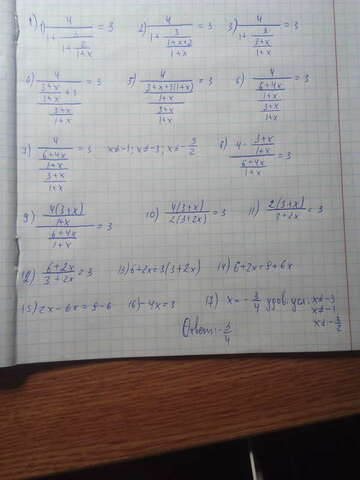 1) 4/(1+3/(1+2/(1+x)))=3 2) 4/(1+3/((1+x+2)/(1+x)))=3 3) 4/(1+3/((3+x)/(1+x)))=3
4/(((3+x)/(1+x)+3)/((3+x)/(1+x)))=3 5) 4/(((3+x+3(1+x))/(1+x))/((3+x)/(1+x)))=3 6) 4/(((6+4x)/(1+x))/((3+x)/(1+x)))=3
4/(((6+4x)/(1+x))/((3+x)/(1+x)))=3 x≠-1; x≠-3; x≠-3/2 8) (4·(3+x)/(1+x))/((6+4x)/(1+x))=3
9) (4(3+x)/(1+x))/((6+4x)/(1+x))=3 10) 4(3+x)/(2(3+2x))=3 11) 2(3+x)/(3+2x)=3
12) (6+2x)/(3+2x)=3 13) 6+2x=3(3+2x) 14) 6+2x=9+6x
15) 2x-6x=9-6 16) -4x=3 17) x=-3/4 удов. усл. x≠-3
x≠-1
x≠-3/2
Ответ: -3/4